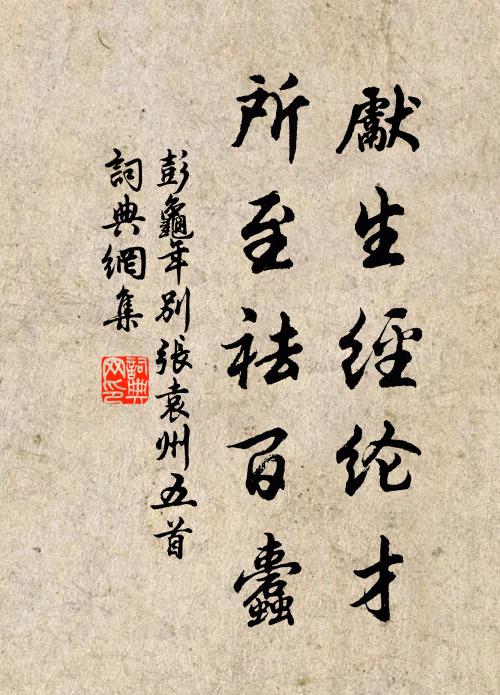 獻生經纶才
所至祛百蠹
彭龜年别張袁州五首
詞典網集
詞典網印